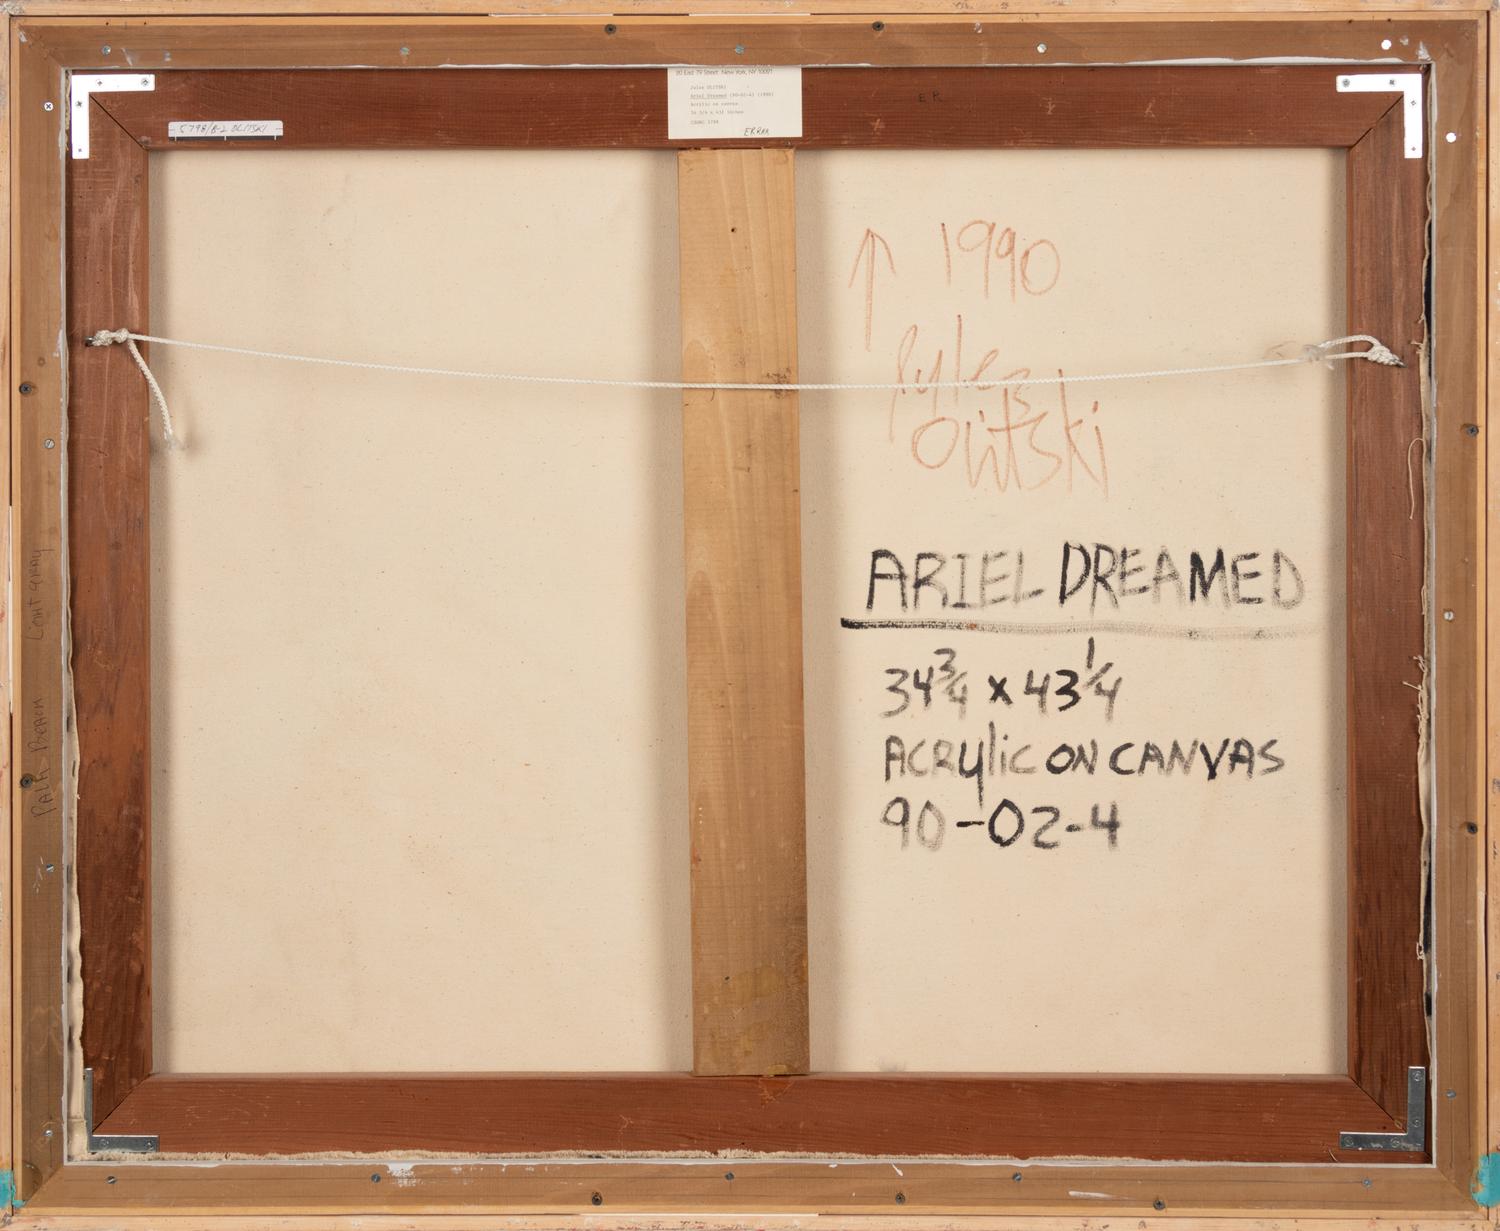 20 East 79 Street New York, NY 10021
Jules OLITSKI
Ariel Dreamed (90-02-4) (1990)
Acrylic on canvas
34 3/4 x 43¼ inches
ER
5798/8-2 OLITSKI
↑ 1990
Jules
Olitski
ARIEL DREAMED
34 3/4 x 43 1/4
ACRYlic ON CANVAS
90-02-4
PALM BEACH LIGHT GRAY